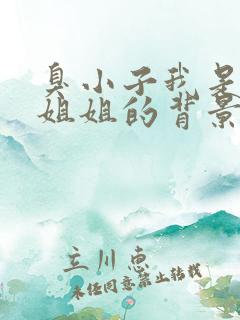 臭小子我是
姐姐的背景
立川惠
未经同意禁止转载